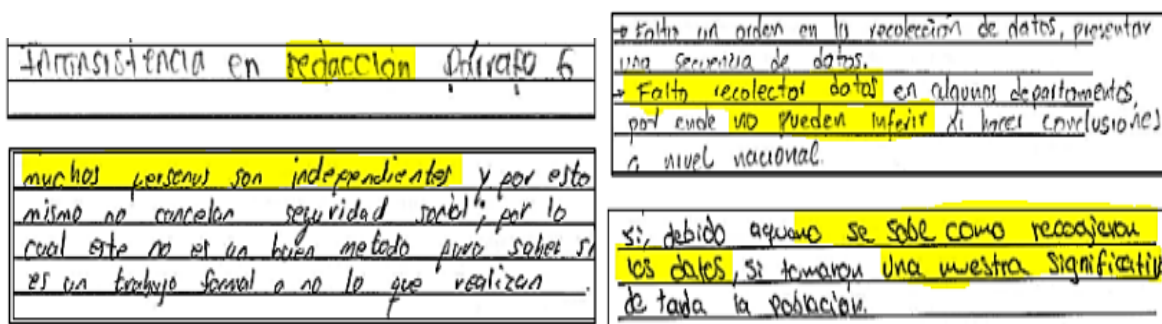 Inconsistencia en redacción Párrafo 6
muchas personas son independientes y por esto
mismo no cancelan seguridad social; por lo
cual este no es un buen metodo para saber si
es un trabajo formal o no lo que realizan.
→ Falto un orden en la recolección de datos, presentar
una secuencia de datos.
→ Falto recolectar datos en algunos departamentos,
por ende no pueden inferir ni hacer conclusiones
a nivel nacional.
si, debido aque no se sabe como recogieron
los datos, si tomaron una muestra significativa
de toda la población.